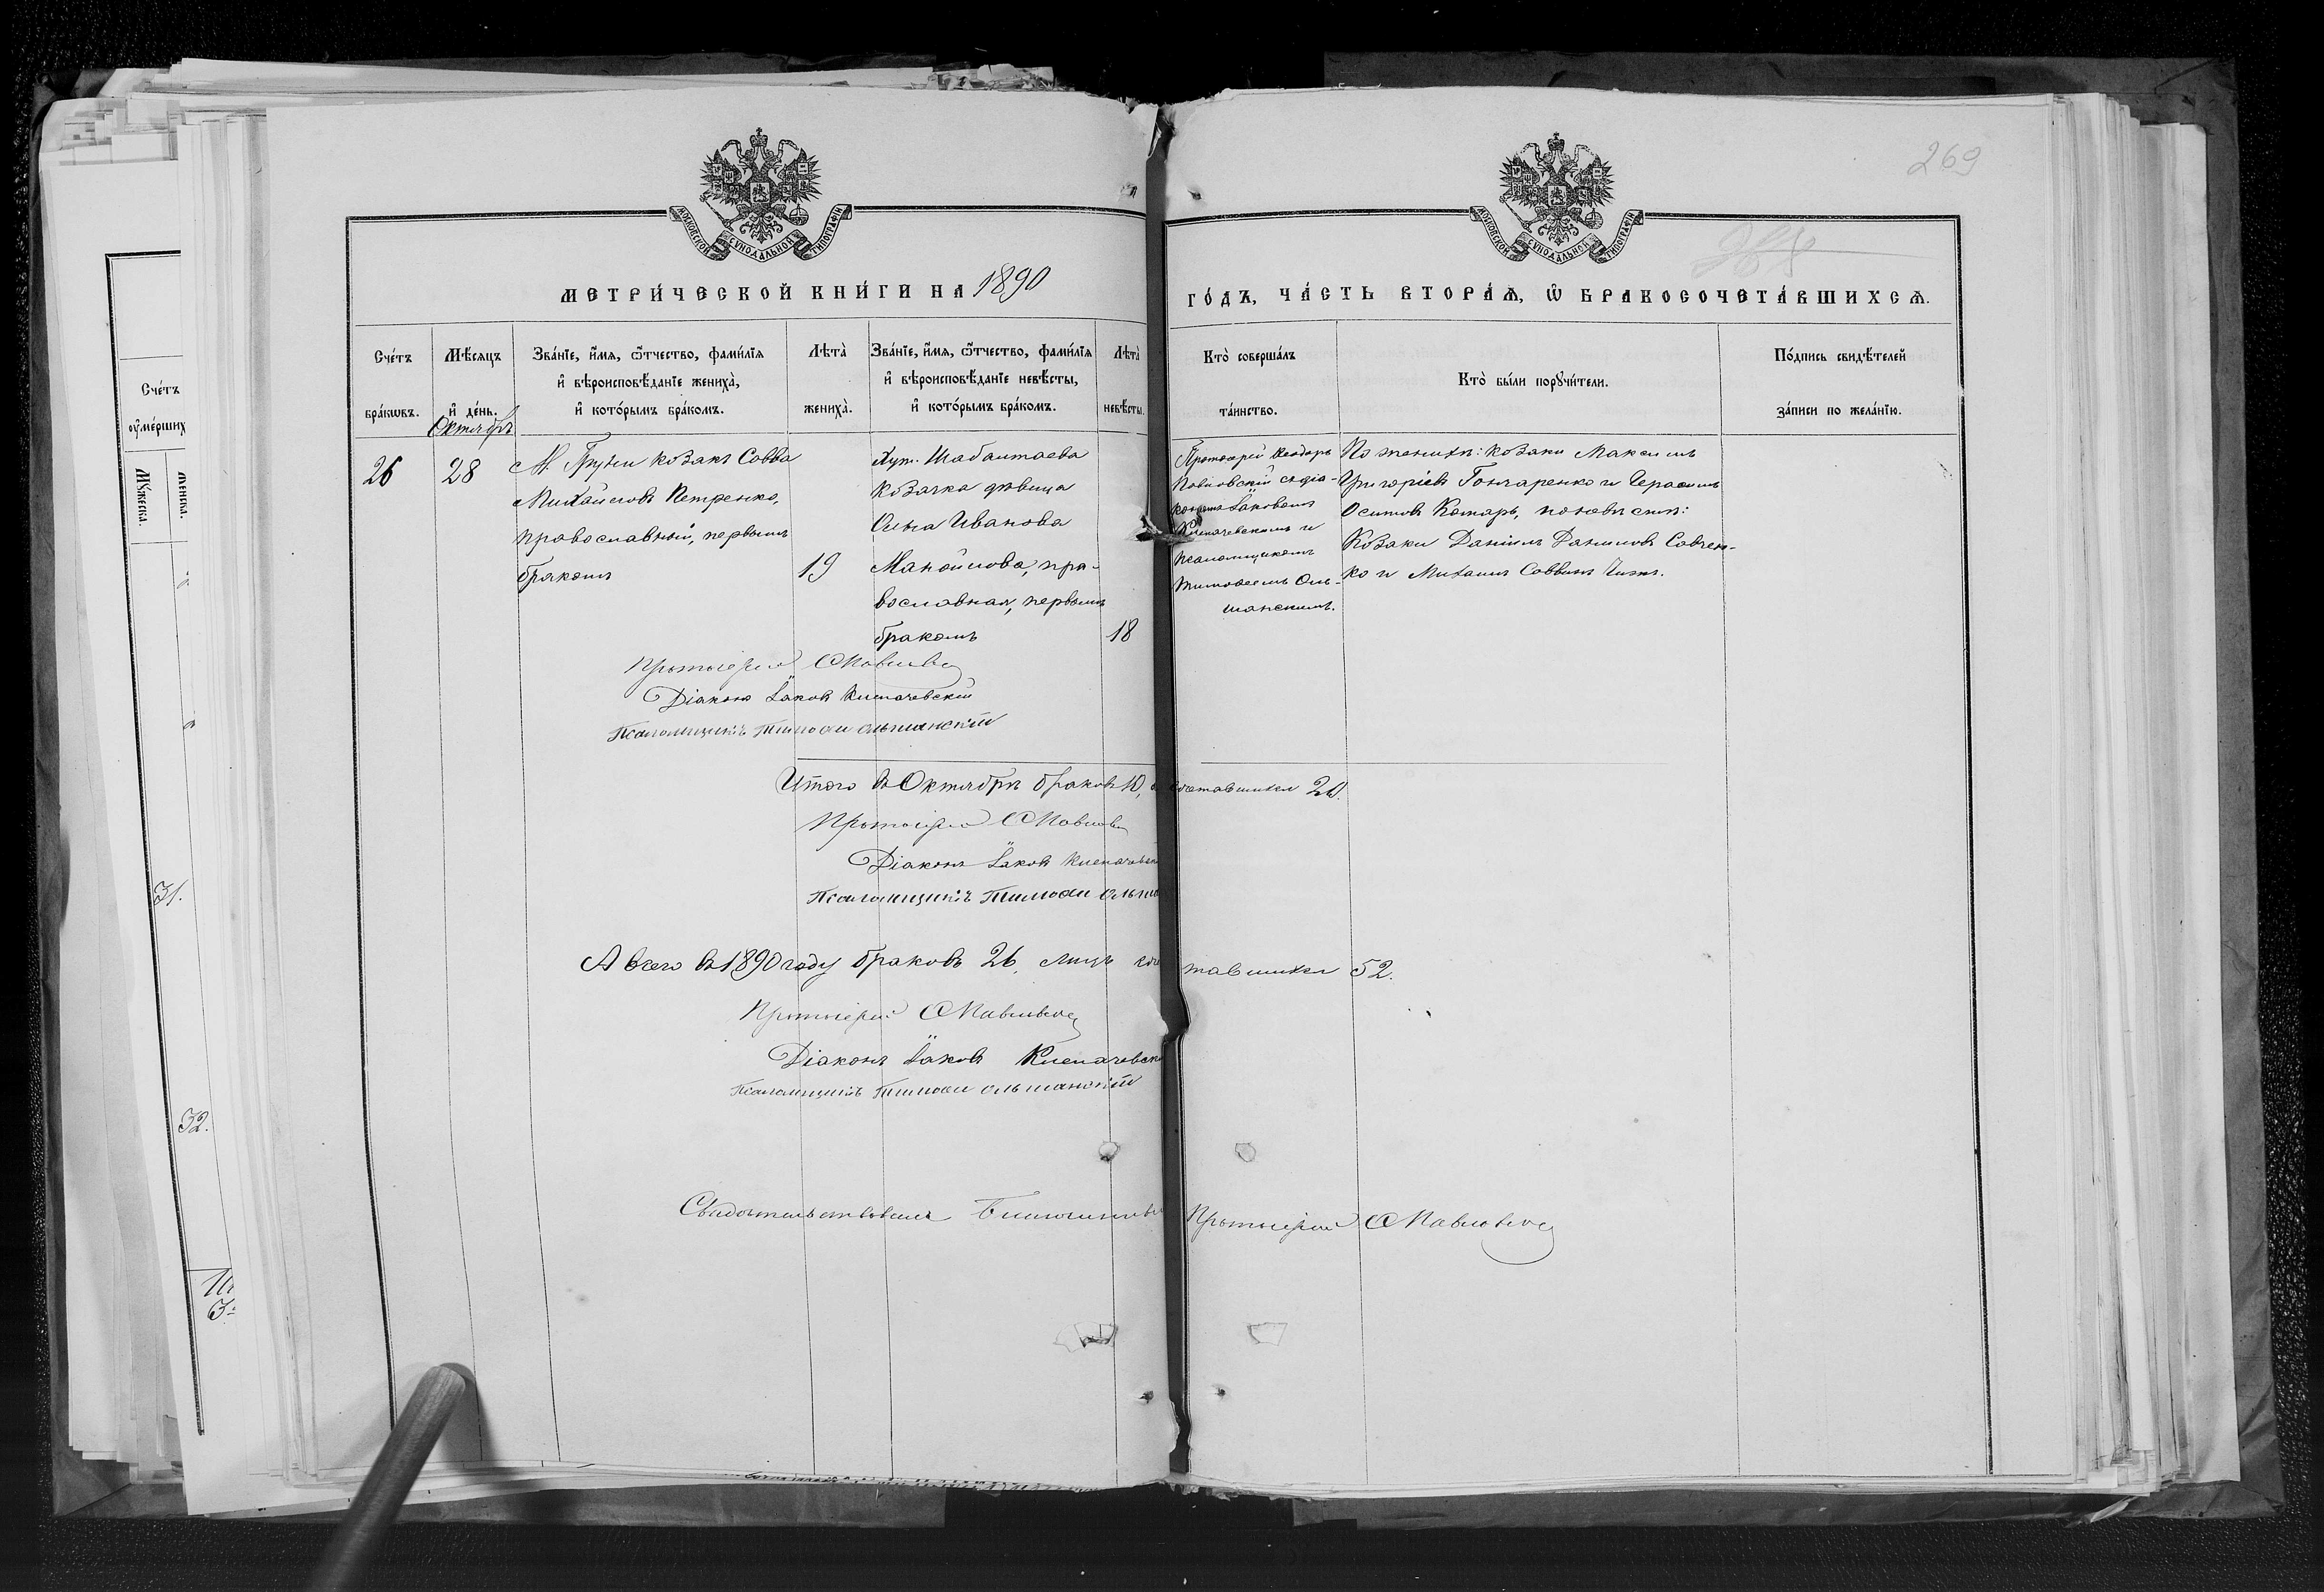 269
МОСКОВСКОЙ СУНОДАЛЬНОЙ ТИПОГРАФІИ
МОСКОВСКОЙ СУНОДАЛЬНОЙ ТИПОГРАФІИ
МЕТРИ́ЧЕСКОЙ КНИ́ГИ НА 1890
ГО́ДЪ, ЧА́СТЬ ВТОРА́Ѧ, Ѡ҆ БРАКОСОЧЕТА́ВШИХСѦ.
Сче́тъ
бра́кѡвъ.
Мѣ́сяцъ
и҆ де́нь.
Октябрь
Зва́нїе, и҆́мя, ѻ҆́тчество, фами́лїя
и҆ вѣроисповѣ́данїе жениха̀,
и҆ кото́рымъ бра́комъ.
Лѣта̀
жениха̀.
Зва́нїе, и҆́мя, ѻ҆́тчество, фами́лїя
и҆ вѣроисповѣ́данїе невѣ́сты,
и҆ кото́рымъ бра́комъ.
Лѣта̀
невѣ́сты.
Кто̀ соверша́лъ
та́инство.
Кто̀ бы́ли порꙋчи́тели.
По́дпись свидѣ́телей
за́писи по жела́нїю.
Сче́тъ
ᲂу҆ме́рших
Мꙋ́жеска.
Же́нска.
31.
32.
26
28
М. Груни козакъ Савва
Михайловъ Петренко,
православный, первымъ
бракомъ
19
Хут. Шабалтаева
козачка дѣвица
Анна Иванова
Манойлова, пра-
вославная, первымъ
бракомъ
18
Протоіерей Ѳеодоръ
Павловскій съ діа-
кономъ Іаковомъ
Клепачевскимъ и
псаломщикомъ
Тимоѳеемъ Оль-
шанскимъ.
По женихѣ: козаки Максимъ
Григоріевъ Гончаренко и Герасимъ
Осиповъ Комаръ, по невѣстѣ:
Козаки Даніилъ Даниловъ Савчен-
ко и Михаилъ Саввинъ Чижъ.
Протоіерей Ѳ Павловск
Діаконъ Іаковъ Клепачевскій
Псаломщикъ Тимоѳей Ольшанскій
Итого въ Октябрѣ браковъ 10, сочетавшихся 20.
Протоіерей Ѳ Павловск
Діаконъ Іаковъ Клепачевск
Псаломщикъ Тимоѳей Ольша
А всего въ 1890 году браковъ 26, лицъ сочетавшихся 52.
Протоіерей Ѳ Павловск
Діаконъ Іаковъ Клепачевск
Псаломщикъ Тимоѳей Ольшанскій
Свидѣтельствовалъ Протоіерей Ѳ Павловск